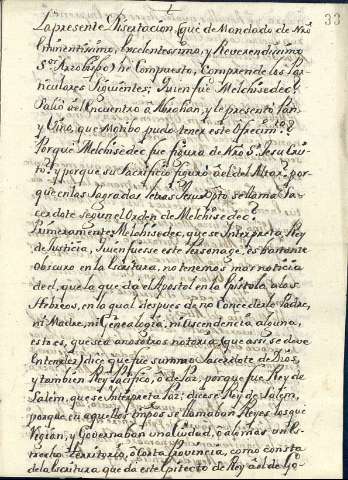 33
La presente Disertacion (que de Mandado de Nro
Eminentissimo, Excelentissimo, y Reverendissimo
Sor. Arzobispo) he Compuesto, Comprende los Par-
ticulares Siguientes; Quien fuè Melchisedec?
Saliò al Encuentro à Abrahan, y le presentò Pan,
y Vino, que Motibo pudo tener este Ofrecimto.?
Porque Melchisedec fue figura de Nro Sr. Jesu Chris-
to? y porque su Sacrificio figurò àel del Altar? por-
que en las Sagradas Letras Jesu Xpto se llama Sa-
cerdote segun el Orden de Melchisedec?
Primeramente Melchisedec, que se Interpreta, Rey
de Justicia, Quien fuese este Personage, es bastante
obscuro en la Escritura, no tenemos mas noticia
de el, que la que dà el Apostol en la Epistola a los
Hebreos, en la qual despues de no Concederle Padre,
ni Madre, ni Genealogia, ni Ascendencia alguna,
esto es, que sea anosotros notoria (que assi se deve
Entender) dice que fuè summo Sacerdote de Dios,
y tambien Rey Pacifico, ò de Paz, porque fuè Rey de
Salèm, que se Interpreta Paz; dicese Rey de Salèm,
porque en aquellos tiempos se llamaban Reyes los que
Regian, y Governaban una Ciudad, ò algun Es-
trecho Territorio, ò Corta Provincia, como consta
de la Escritura que da este Epitecto de Rey àel de Go-